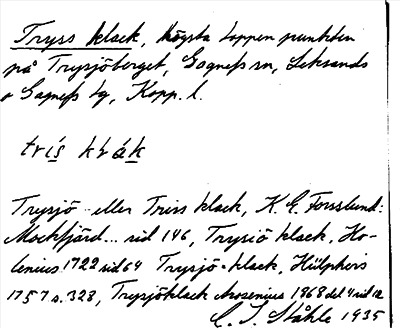 Tryss klack, högsta toppen punkten
på Trysjöberget, Gagnefs sn, Leksands
o Gagnefs tg, Kopp. l.
trís klák
Trysjö- eller Triss klack, K. E. Forsslund:
Mockfjärd... sid 146, Trysiö klack, Ho-
lenius 1722 sid 64 Trysjö-klack, Hülphers
1757 s. 328, Trysjöklack Arosenius 1868 del 4 sid 12
C. I. Ståhle 1935